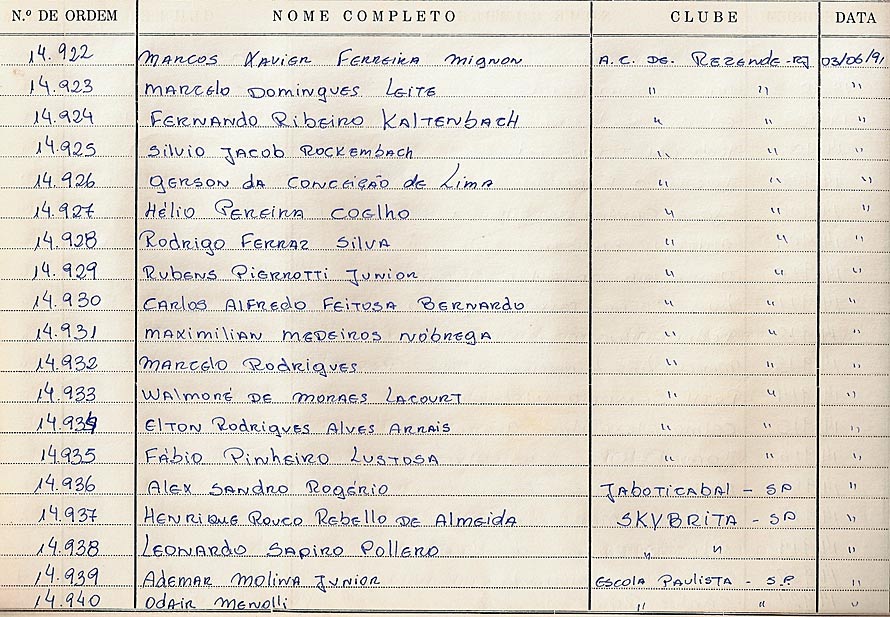 N.º DE ORDEM NOME COMPLETO CLUBE DATA
14.922 Marcos Xavier Ferreira Mignon A.C. DE. Rezende-RJ 03/06/91
14.923 Marcelo Domingues Leite " " "
14.924 Fernando Ribeiro Kaltenbach " " "
14.925 Silvio Jacob Rockembach " " "
14.926 Gerson da Conceição de Lima " " "
14.927 Hélio Pereira Coelho " " "
14.928 Rodrigo Ferraz Silva " " "
14.929 Rubens Pierrotti Junior " " "
14.930 Carlos Alfredo Feitosa Bernardo " " "
14.931 Maximilian Medeiros Nóbrega " " "
14.932 Marcelo Rodrigues " " "
14.933 Walmoré de Moraes Lacourt " " "
14.934 Elton Rodrigues Alves Arrais " " "
14.935 Fábio Pinheiro Lustosa " " "
14.936 Alex Sandro Rogério Jaboticabal - SP "
14.937 Henrique Rouco Rebello de Almeida SKYBRITA - SP "
14.938 Leonardo Sapiro Pollero " " "
14.939 Ademar Molina Junior Escola Paulista - S.P "
14.940 Odair Menolli " " "